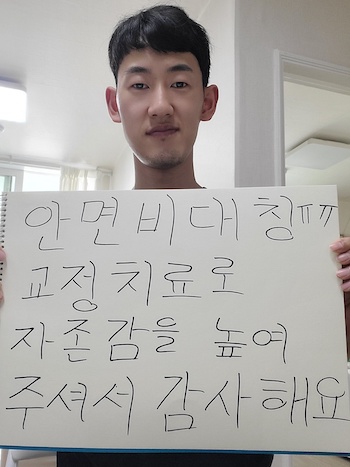 안면비대칭ㅠㅠ
교정치료로
자존감을 높여
주셔서 감사해요